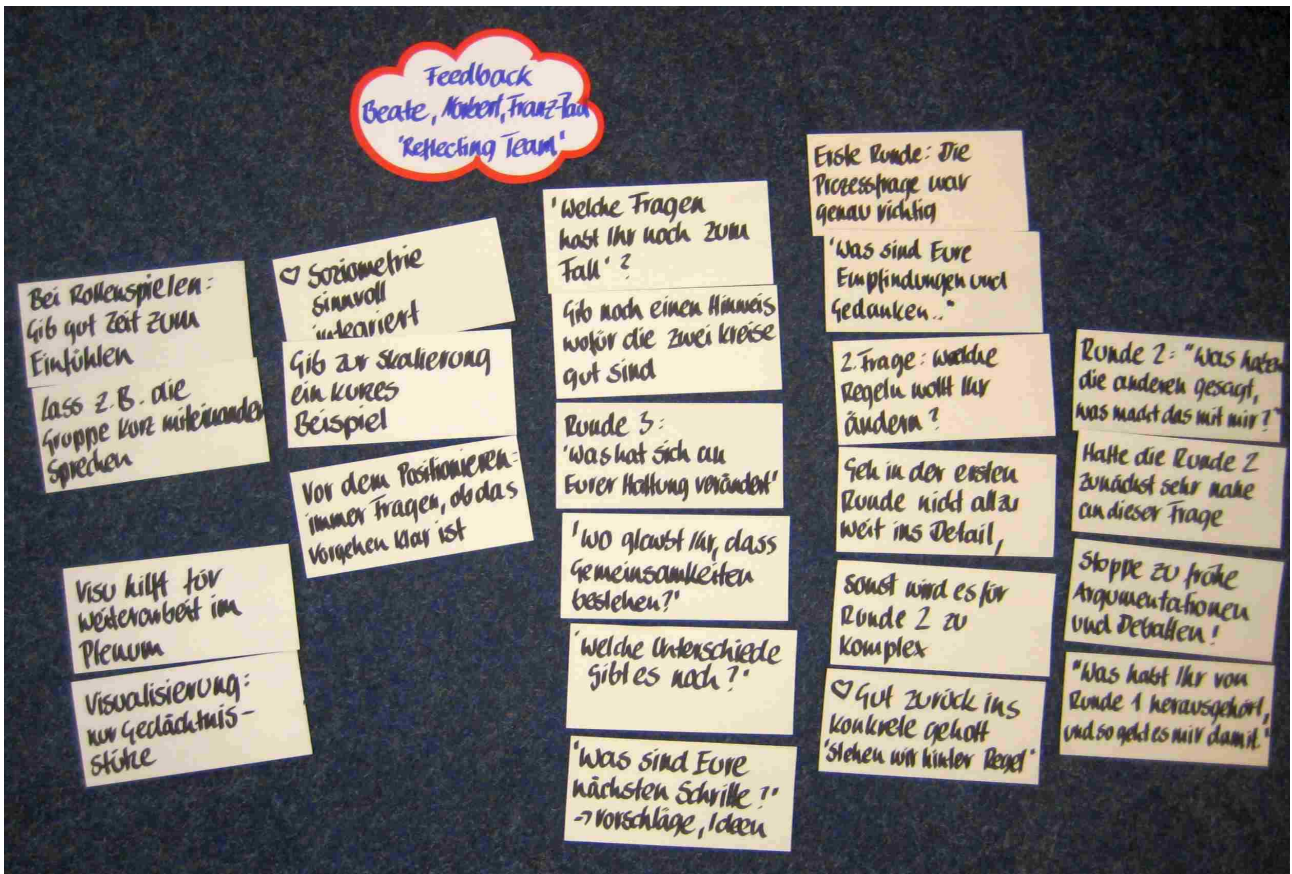 Feedback
Beate, Norbert, Franz-Paul
'Reflecting Team'
Bei Rollenspielen:
Gib gut Zeit zum
Einfühlen
Lass z.B. die
Gruppe kurz miteinander
sprechen
Visu hilft für
Weiterarbeit im
Plenum
Visualisierung:
nur Gedächtnis-
stütze
♡ Soziometrie
sinnvoll
integriert
Gib zur Skalierung
ein kurzes
Beispiel
Vor dem Positionieren:
immer Fragen, ob das
Vorgehen klar ist
'Welche Fragen
habt Ihr noch zum
Fall'?
Gib noch einen Hinweis
wofür die zwei Kreise
gut sind
Runde 3:
'Was hat sich an
Eurer Haltung verändert'
'Wo glaubt Ihr, dass
Gemeinsamkeiten
bestehen?'
'Welche Unterschiede
gibt es noch?'
'Was sind Eure
nächsten Schritte?'
→ Vorschläge, Ideen
Erste Runde: Die
Prozessfrage war
genau richtig
'Was sind Eure
Empfindungen und
Gedanken..'
2. Frage: Welche
Regeln wollt Ihr
ändern?
Geh in der ersten
Runde nicht allzu
weit ins Detail,
sonst wird es für
Runde 2 zu
komplex
♡ Gut zurück ins
Konkrete geholt
'Stehen wir hinter Regel'
Runde 2: "Was haben
die anderen gesagt,
was macht das mit mir?"
Halte die Runde 2
zunächst sehr nahe
an dieser Frage
Stoppe zu frühe
Argumentationen
und Debatten!
"Was habt Ihr von
Runde 1 herausgehört,
und so geht es mir damit."